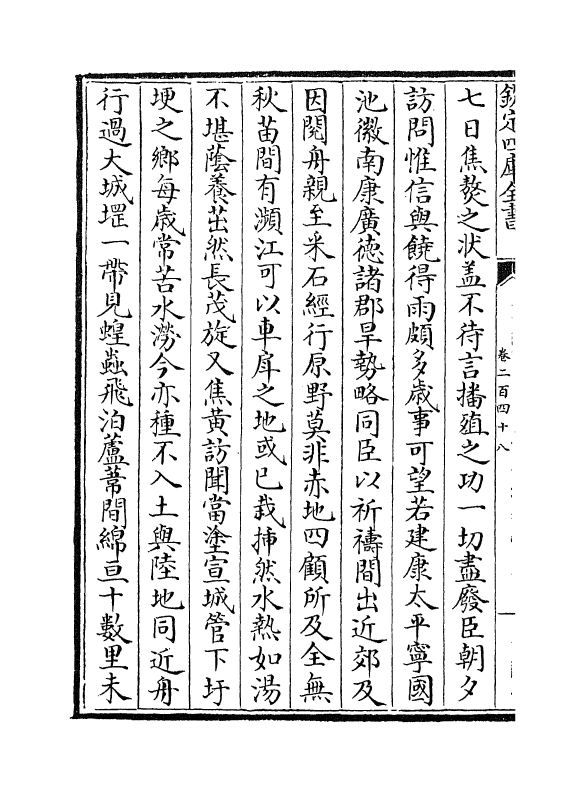 欽定四庫全書
卷二百四十八
七日焦熬之状盖不待言播殖之功一切盡廢臣朝夕
訪問惟信與饒得雨頗多歳事可望若建康太平寧國
池徽南康廣徳諸郡旱勢略同臣以祈禱間出近郊及
因閱舟親至采石經行原野莫非赤地四顧所及全無
秋苗間有瀕江可以車戽之地或已栽揷然水熱如湯
不堪蔭養茁然長茂旋又焦黄訪聞當塗宣城管下圩
埂之鄉每歳常苦水澇今亦種不入土與陸地同近舟
行過大城堽一帶見蝗蟲飛泊蘆葦間綿亘十數里未